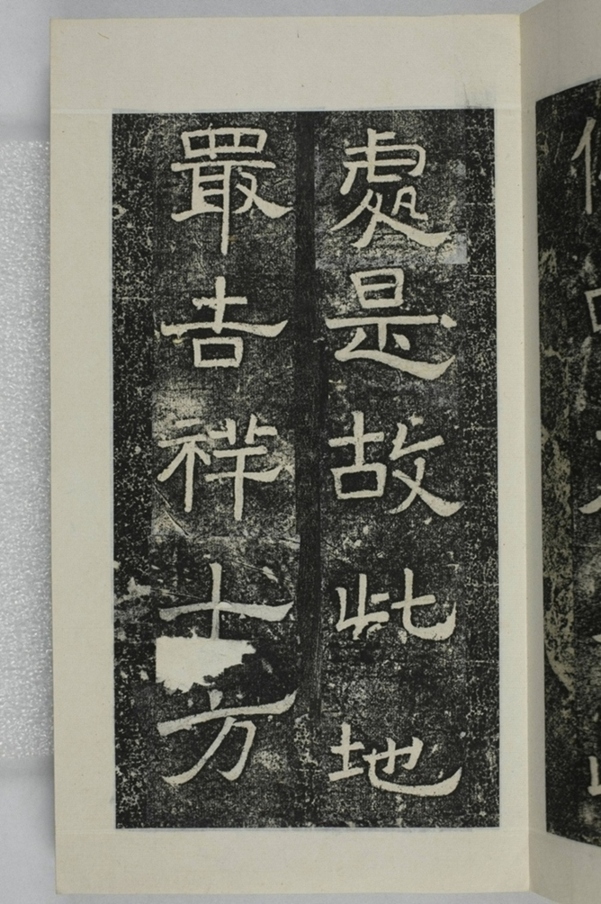 處是故此地
最吉祥十方